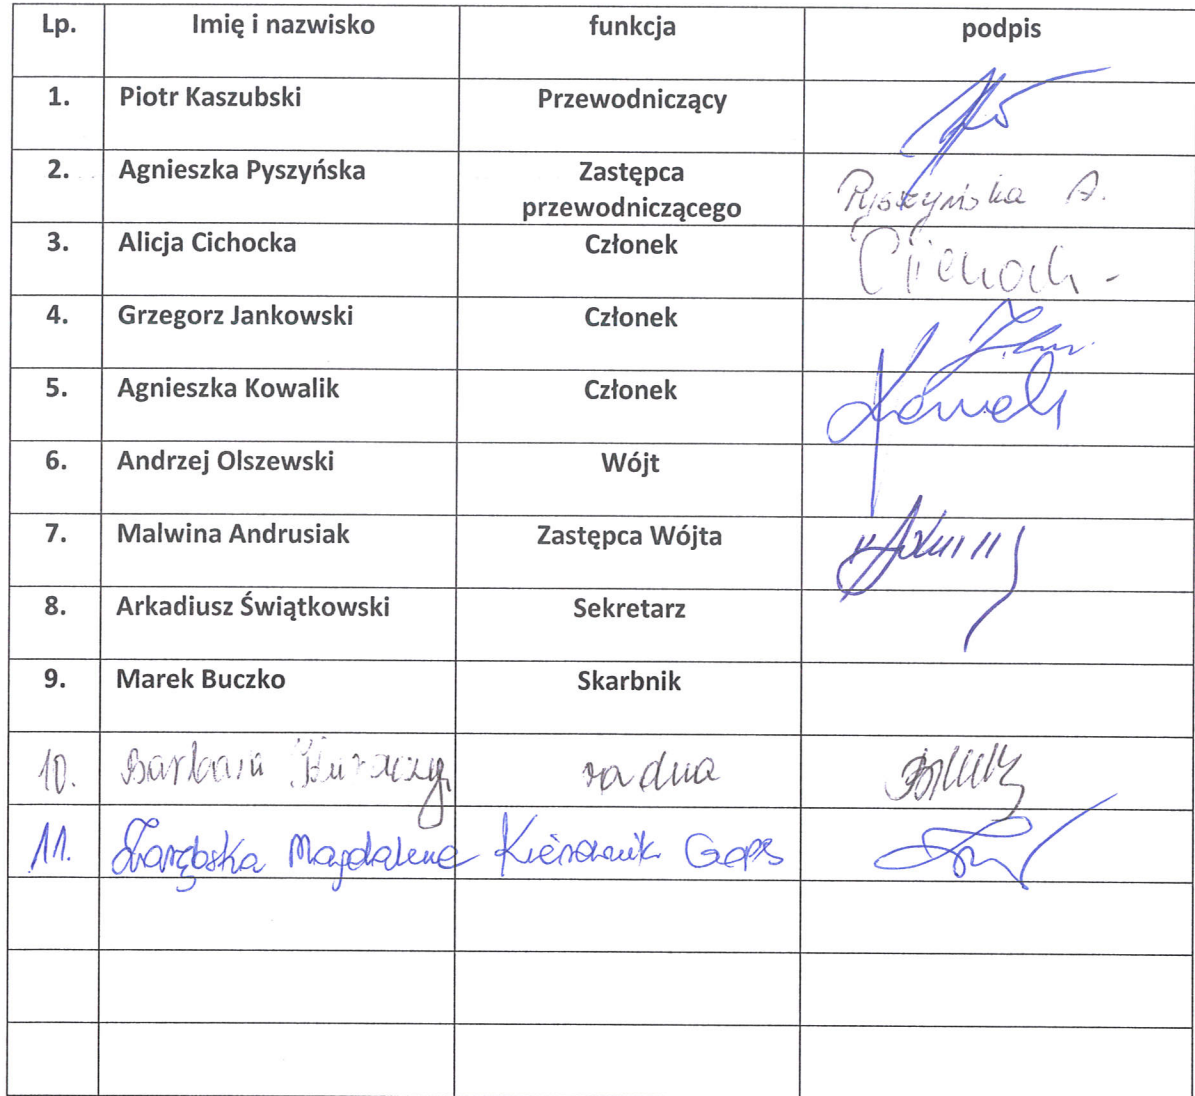 Lp. Imię i nazwisko funkcja podpis
1. Piotr Kaszubski Przewodniczący
2. Agnieszka Pyszyńska Zastępca
przewodniczącego Pyszyńska A.
3. Alicja Cichocka Członek
4. Grzegorz Jankowski Członek
5. Agnieszka Kowalik Członek
6. Andrzej Olszewski Wójt
7. Malwina Andrusiak Zastępca Wójta
8. Arkadiusz Świątkowski Sekretarz
9. Marek Buczko Skarbnik
10. Barbara radna
11. Zarębska Magdalena Kierownik GOPS